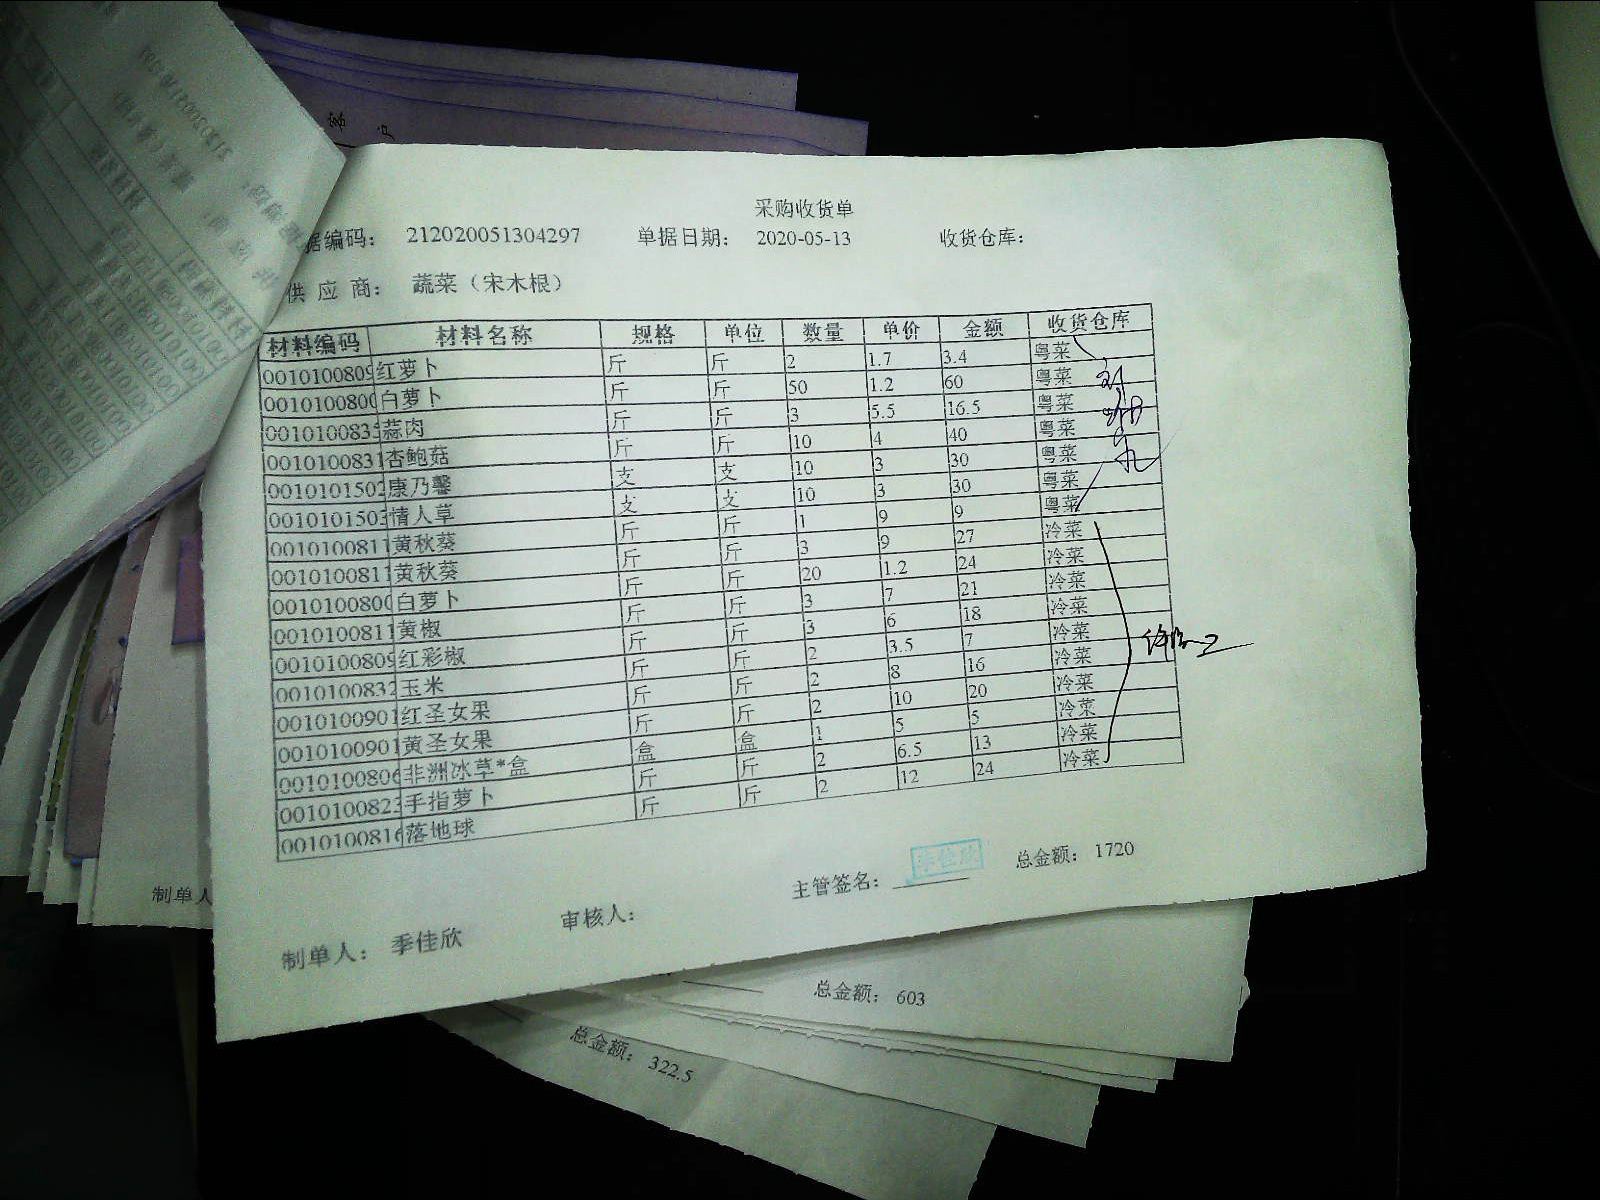 客 户
采购收货单
据编码： 212020051304297 单据日期： 2020-05-13 收货仓库：
供 应 商： 蔬菜（宋木根）
材料编码 材料名称 规格 单位 数量 单价 金额 收货仓库
0010100809 红萝卜 斤 斤 2 1.7 3.4 粤菜
0010100800 白萝卜 斤 斤 50 1.2 60 粤菜
0010100835 蒜肉 斤 斤 3 5.5 16.5 粤菜
0010100831 杏鲍菇 斤 斤 10 4 40 粤菜
0010101502 康乃馨 支 支 10 3 30 粤菜
0010101503 情人草 支 支 10 3 30 粤菜
0010100811 黄秋葵 斤 斤 1 9 9 粤菜
0010100811 黄秋葵 斤 斤 3 9 27 冷菜
0010100800 白萝卜 斤 斤 20 1.2 24 冷菜
0010100811 黄椒 斤 斤 3 7 21 冷菜
0010100809 红彩椒 斤 斤 3 6 18 冷菜
0010100832 玉米 斤 斤 2 3.5 7 冷菜
0010100901 红圣女果 斤 斤 2 8 16 冷菜
0010100901 黄圣女果 斤 斤 2 10 20 冷菜
0010100806 非洲冰草*盒 盒 盒 1 5 5 冷菜
0010100823 手指萝卜 斤 斤 2 6.5 13 冷菜
0010100816 落地球 斤 斤 2 12 24 冷菜
主管签名： 季佳欣 总金额： 1720
制单人： 季佳欣 审核人：
制单人
总金额： 603
总金额： 322.5